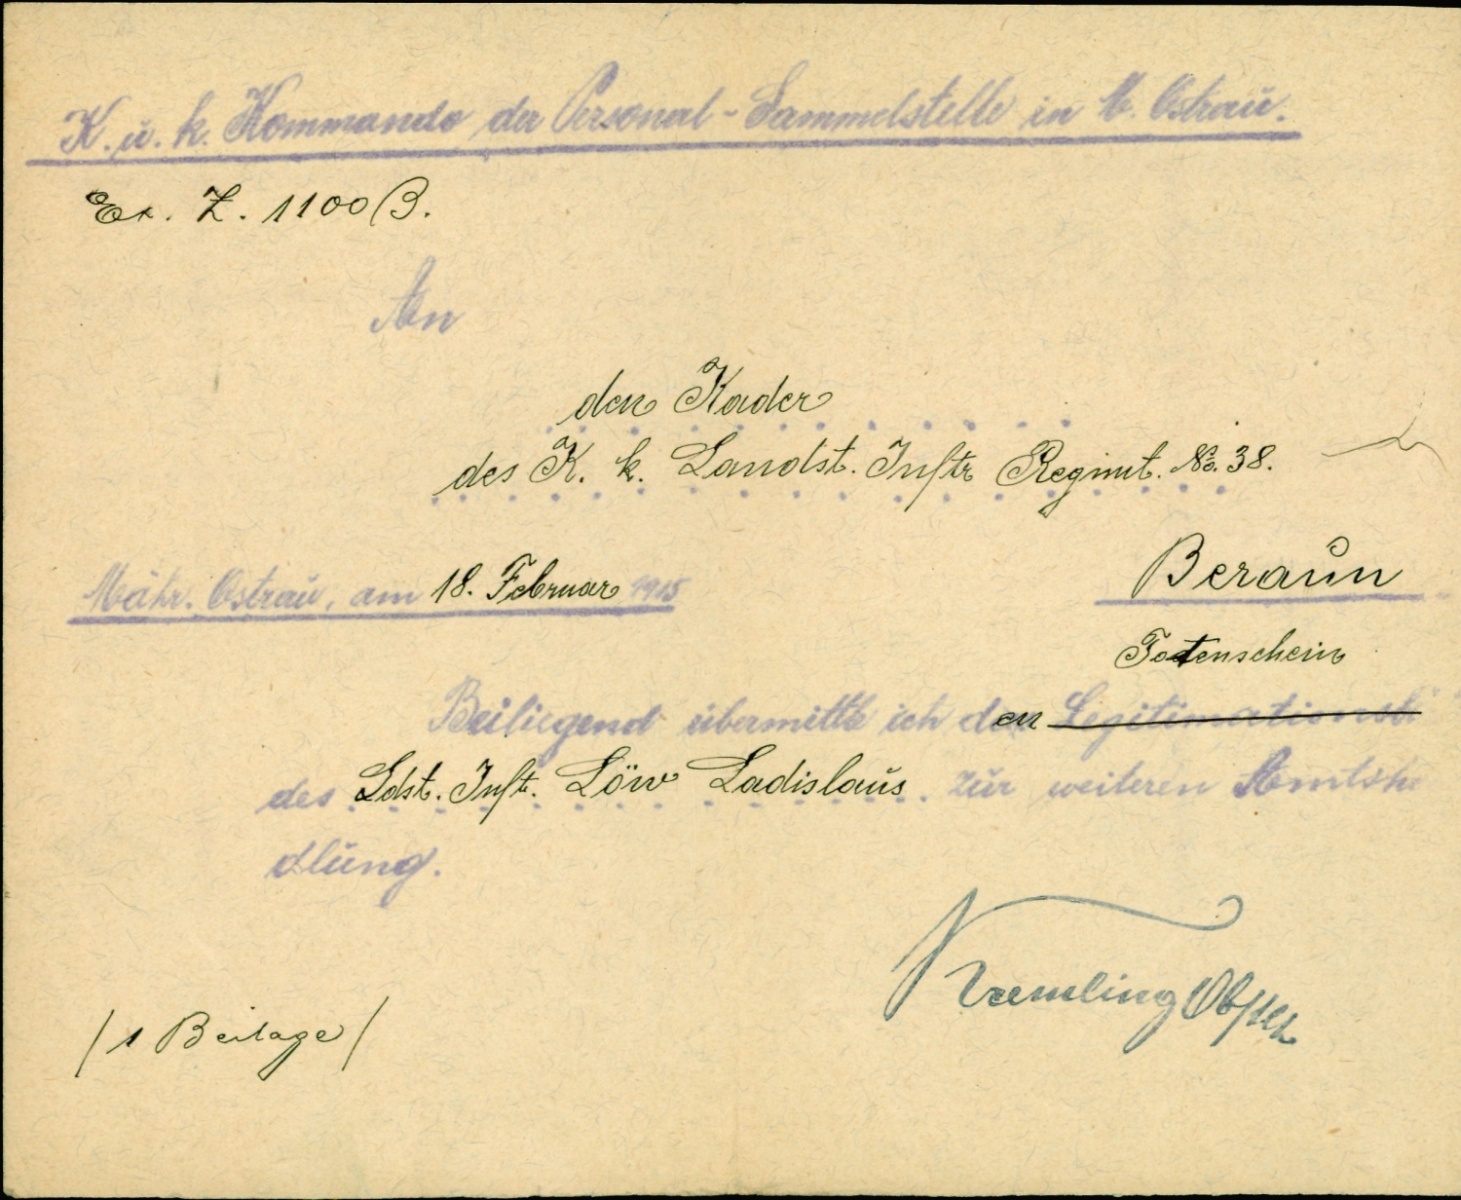 K. u. k. Kommando der Personal-Sammelstelle in M. Ostrau.
Ex. Z. 1100 B.
An
den Kader
des K. k. Landst. Inftr Regimt. No. 38.
Beraun
Mähr. Ostrau, am 18. Februar 1915
Totenschein
Beiliegend übermittle ich den Legitimationsbl
des Ldst. Inft. Löw Ladislaus. zur weiteren Amtsha
dlung.
Kremling
/ 1 Beilage /